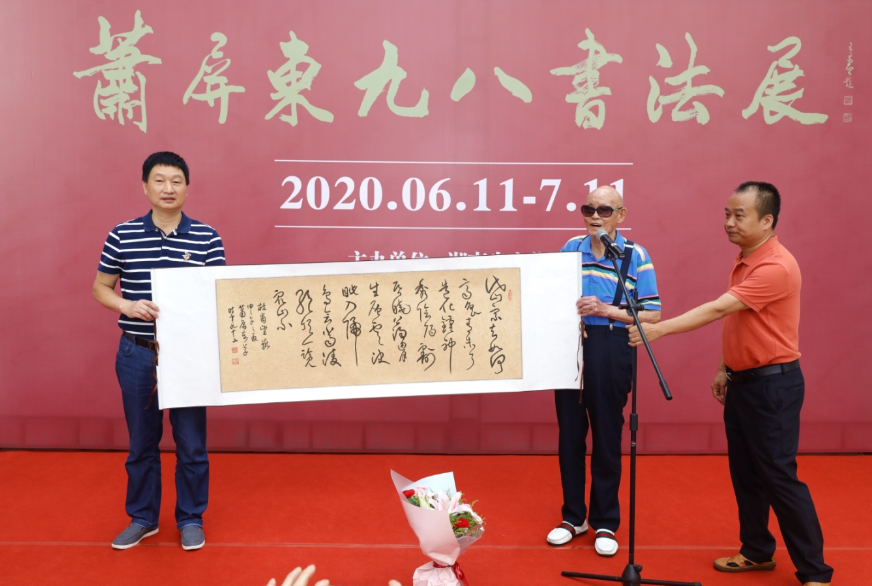 蕭屏東九八書法展
2020.06.11-7.11
主办单位
岱宗夫如何
齊魯青未了
造化鍾神
秀陰陽割
昏曉蕩胸
生層雲決
眥入歸
鳥會當凌
絕頂一覽
眾山小
杜甫望嶽